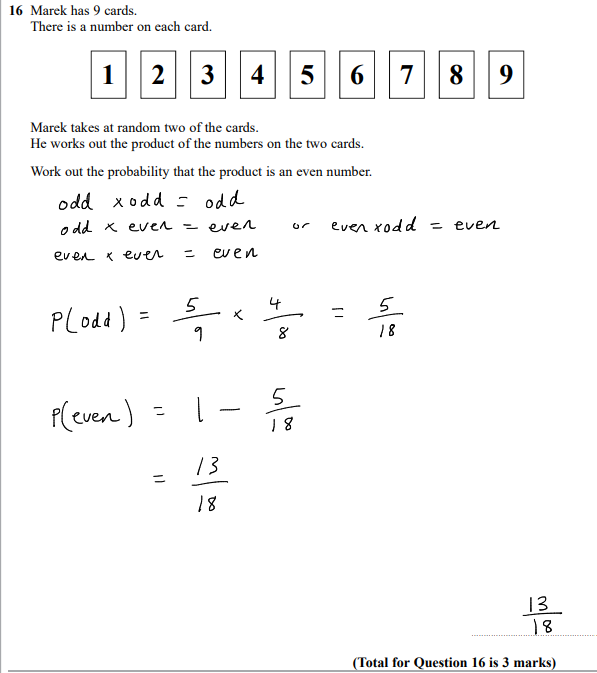 16 Marek has 9 cards.
There is a number on each card.
1 2 3 4 5 6 7 8 9
Marek takes at random two of the cards.
He works out the product of the numbers on the two cards.
Work out the probability that the product is an even number.
odd x odd = odd
odd x even = even or even x odd = even
even x even = even
P(odd) = 5/9 x 4/8 = 5/18
P(even) = 1 - 5/18
= 13/18
13/18
(Total for Question 16 is 3 marks)